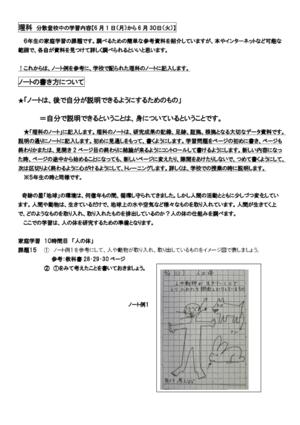 理科 分散登校中の学習内容【6月1日(月)から6月30日(火)】
6年生の家庭学習の課題です。調べるための簡単な参考資料を紹介していますが、本やインターネットなど可能な
範囲で、各自が資料を見つけて詳しく調べられるといいと思います。
！これからは、ノート例を参考に、学校で配られた理科のノートに記入します。
ノートの書き方について
★「ノートは、後で自分が説明できるようにするためのもの」
＝自分で説明できるということは、身についているということです。
★「理科のノート」に記入します。理科のノートは、研究成果の記録、足跡、証拠、根拠となる大切なデータ資料です。
説明の通りにノートに記入します。初めに見通しをもって、書くようにします。学習問題をページの初めに書き、ページも
終わりかまたは、見開き2ページ目の終わりに結論が来るようにコントロールして書けるようにします。新しい内容になっ
た時、ページの途中から始めることになっても、新しいページに変えたり、隙間をあけたりしないで、つめて書くようにして、
次は区切りよく終わるように心がけるようにして、トレーニングします。詳しは、学校での授業の時に説明します。
※5年生の時と同様です。
奇跡の星「地球」の環境は、何億年もの間、循環し守られてきました。しかし人間の活動とともに少しづつ変化してい
ます。人間や動物は、生きているだけで、地球上の水や空気など様々なものを取り入れています。人間が生きてくよ
で、どのようなものを取り入れ、取り入れたものを排出しているのか？人体の仕組みを調べます。
ここでの学習は、人体を研究するための準備となります。
家庭学習 10時間目 「人の体」
課題15 ① ノート例1を参考にして、人や動物が取り入れ、取り出しているものをイメージ図で表しましょう。
参考:教科書28・29・30ページ
② ①をみて考えたことを書いておきましょう。
ノート例1
人の体